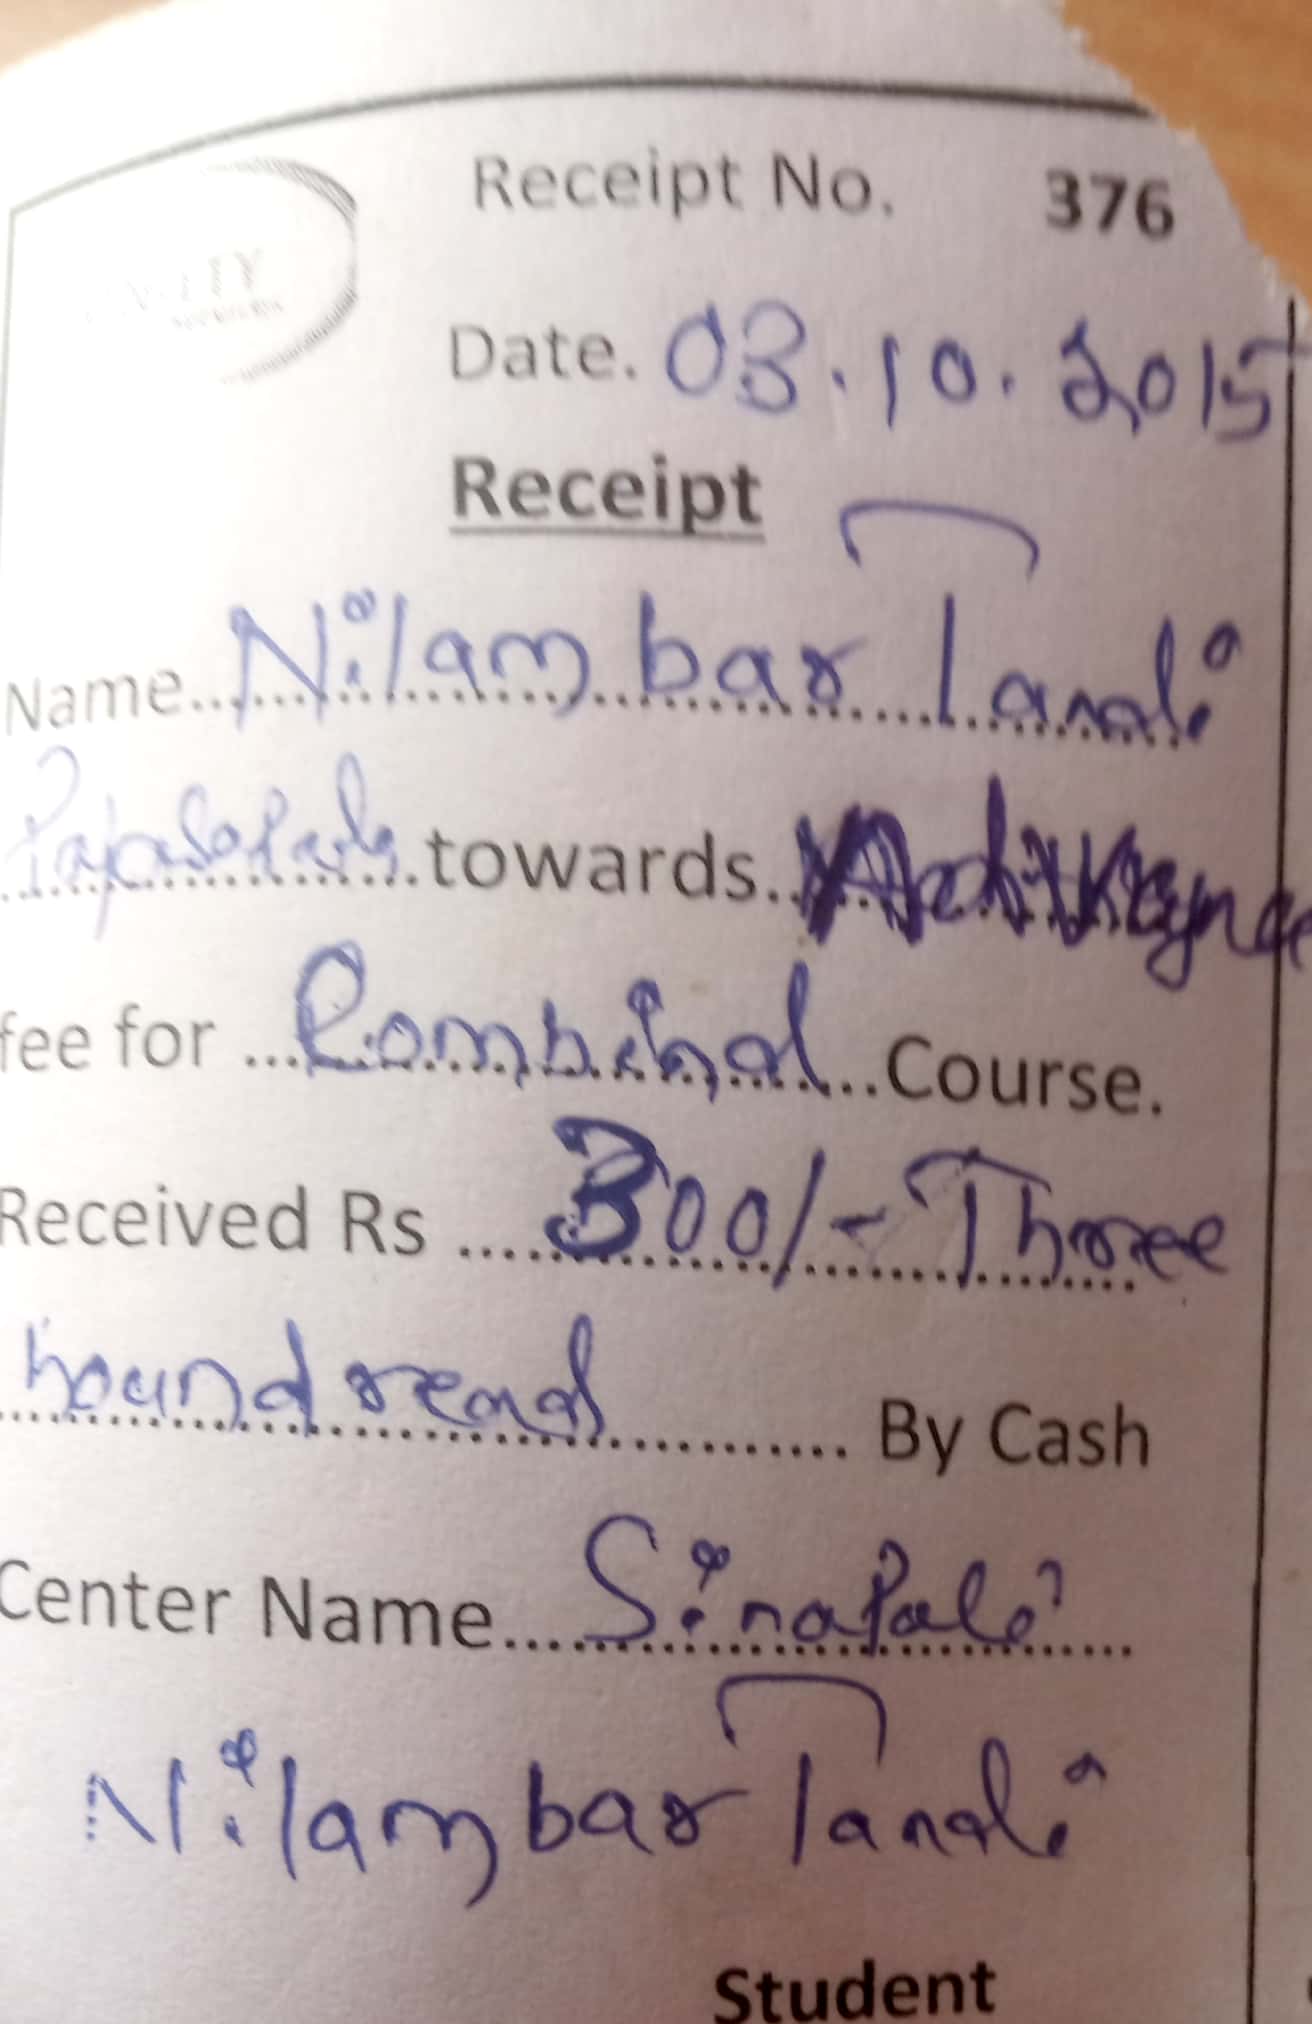 Receipt No. 376
Date. 03.10.2015
Receipt
Name.. Nilambar Tandi
towards..
fee for ... Combind ..Course.
Received Rs .... 300/- Three
houndread ........ By Cash
Center Name.... Sinapali
Nilambar Tandi
Student